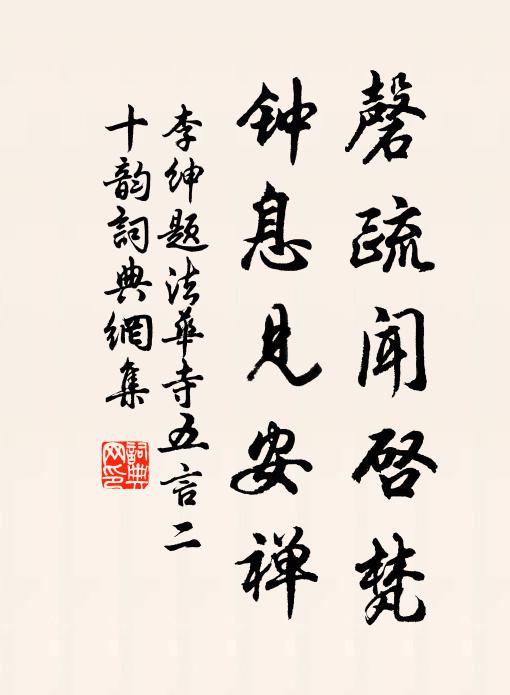 磬疏闻启梵
钟息见安禅
李绅题法华寺五言二
十韵词典網集
詞典网印